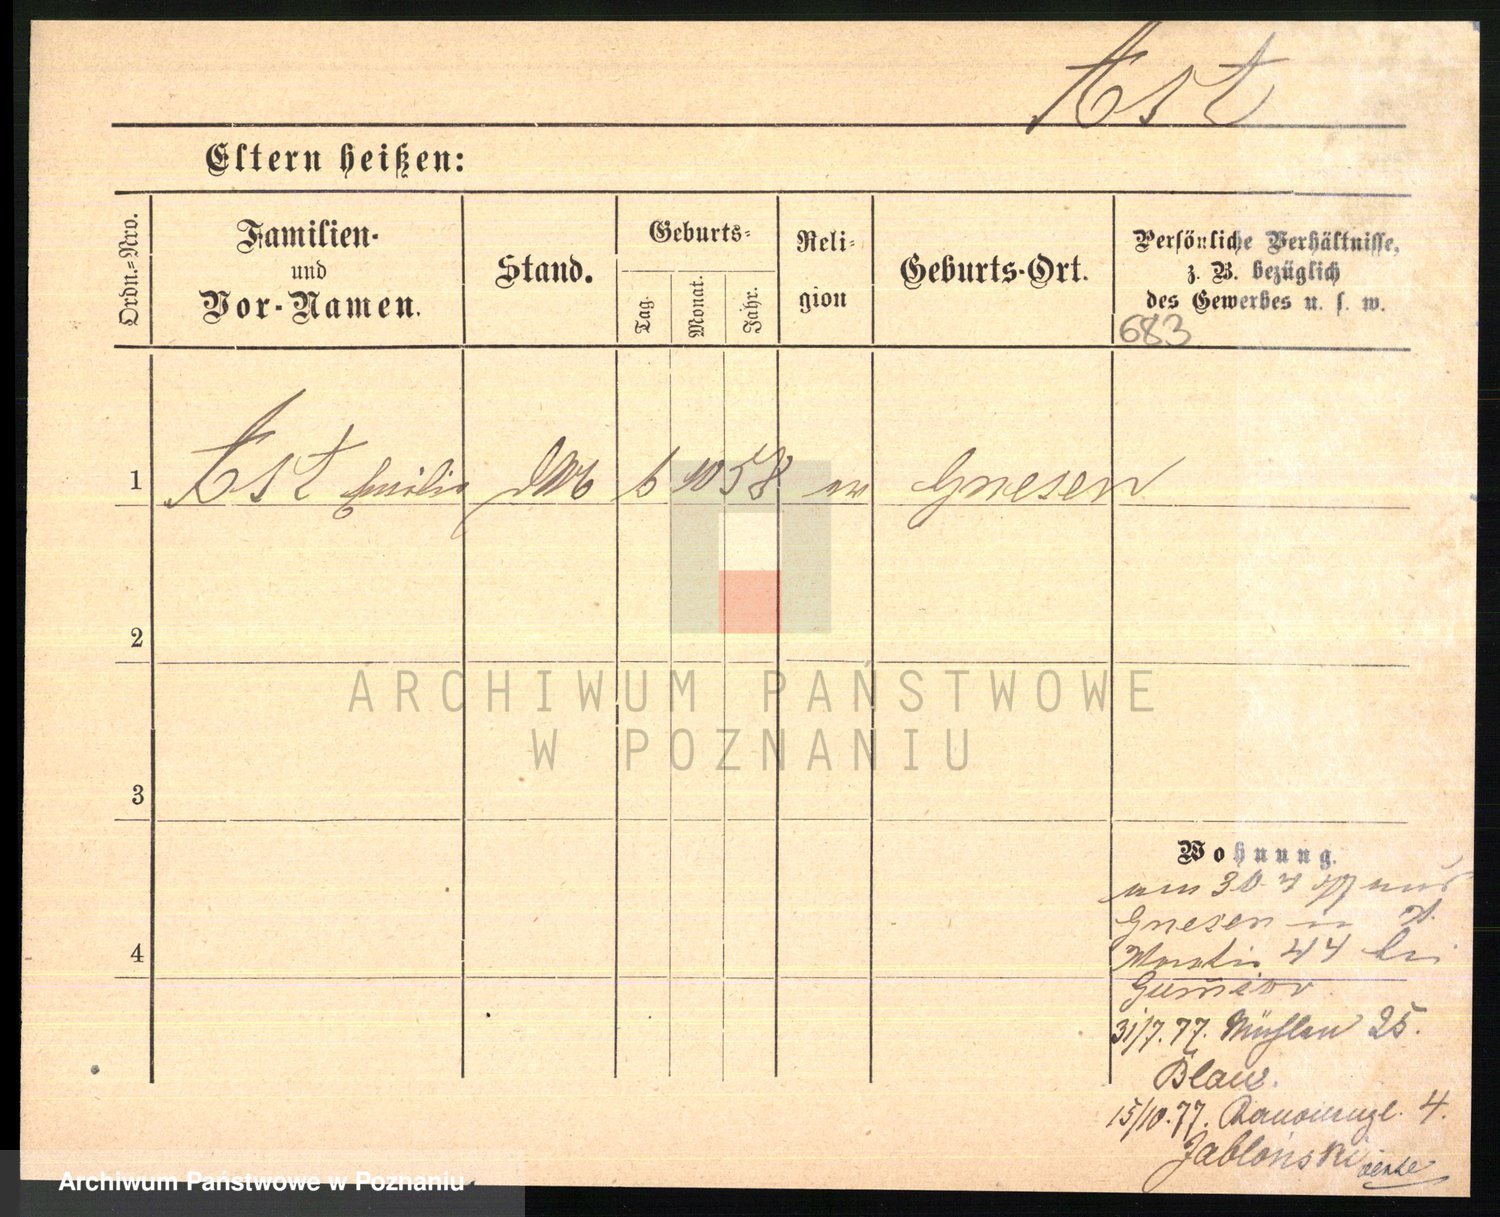 Ast
Eltern heißen:
Ordn.-Nro.
Familien-
und
Vor-Namen.
Stand.
Geburts-
Tag.
Monat.
Jahr.
Reli-
gion
Geburts-Ort.
Persönliche Verhältnisse,
z. B. bezüglich
des Gewerbes u. s. w.
683
1 Ast Emilie 6 10 58 ev Gnesen
2
3
4
Wohnung.
am 30 7 77 aus
Gnesen n St.
Martin 44 bei
Gumior
31/7. 77. Mühlen 25.
Blau.
15/10. 77. 4.
Jablonski
ARCHIWUM PAŃSTWOWE
W POZNANIU
Archiwum Państwowe w Poznaniu